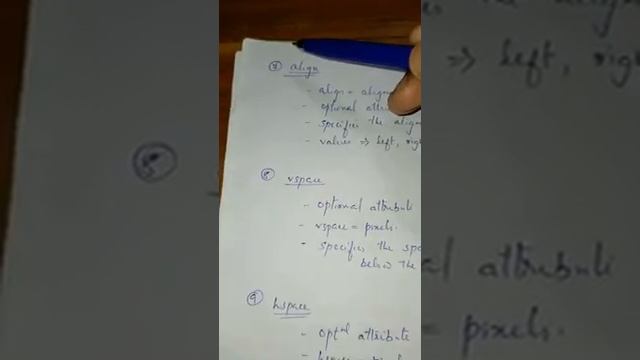 ⑦ align
- align = align
- optional attri
- specifies the align
- values => left, righ
⑧ vspace
- optional attribute
- vspace = pixels.
- specifies the spa
below the
⑨ hspace
- optnl attribute